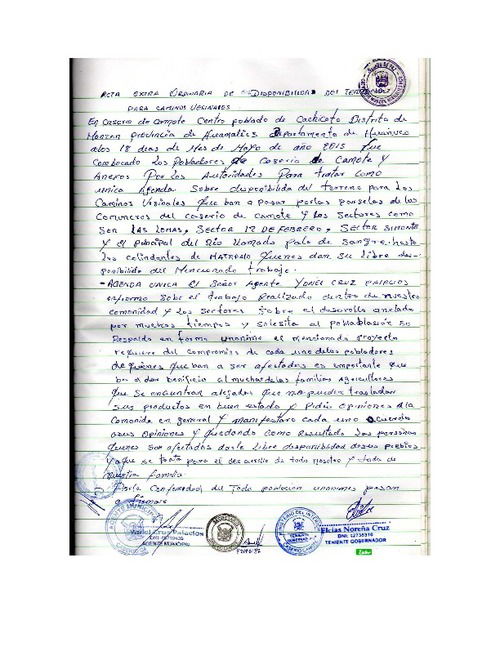 ACTA EXTRA ORDINARIA DE DISPONIBILIDAD DEL TERRENO
PARA CAMINOS VECINALES
En Caserio de Camote Centro poblado de Cachicoto Distrito de
Monzon Provincia de Huamalies Departamento de Huánuco
a los 18 dias de Mes de Mayo de año 2015 que
Combocado los Pobladores de Caserio de Camote y
Anexos Por las Autoridades Para tratar como
unica Agenda Sobre disponibilidad del Terreno para los
Caminos Vesinales que ban a pasar por las parselas de los
Comuneros del Caserio de Camote y los Sectores como
son las lomas, Sector 12 DE FEBRERO, Sector Simonte
y el principal del Rio llamado palo de Sangre. hasta
los colindantes de quienes dan su libre dis-
ponibilidad del Mencionado trabajo.
- AGENDA UNICA El Señor Agente YONEL CRUZ PALACIOS
informo Sobe el trabajo Realizado dentro de nuestra
comunidad y los Sectores Sobre el desarollo anelado
por muchos tiempos y solisita al poblasion en
Respaldo en forma unanime el mencionado proyecto
requiere del compromiso de cada uno de los pobladores
de quienes que ban a ser afectados es importante que
ba a dar benificio al muchas de las familias Agricultores
que se encuentran alejados que no pueden trasladar
sus productos en buen estado y Pidio opiniones a la
Comonida en general y manifestaro cada uno acuerdo
asus opiniones y quedando como Resultado las personas
quienes son afectados darle libre disponibilidad desus predios
ya que se trata para el desarrollo de todo nosotro y toda de
nuestra familia
todo poblacion unanimes pasan
a firmar
Palacios
AGENTE MUNICIPAL
Elcias Noreña Cruz
DNI. 22735316
TENIENTE GOBERNADOR